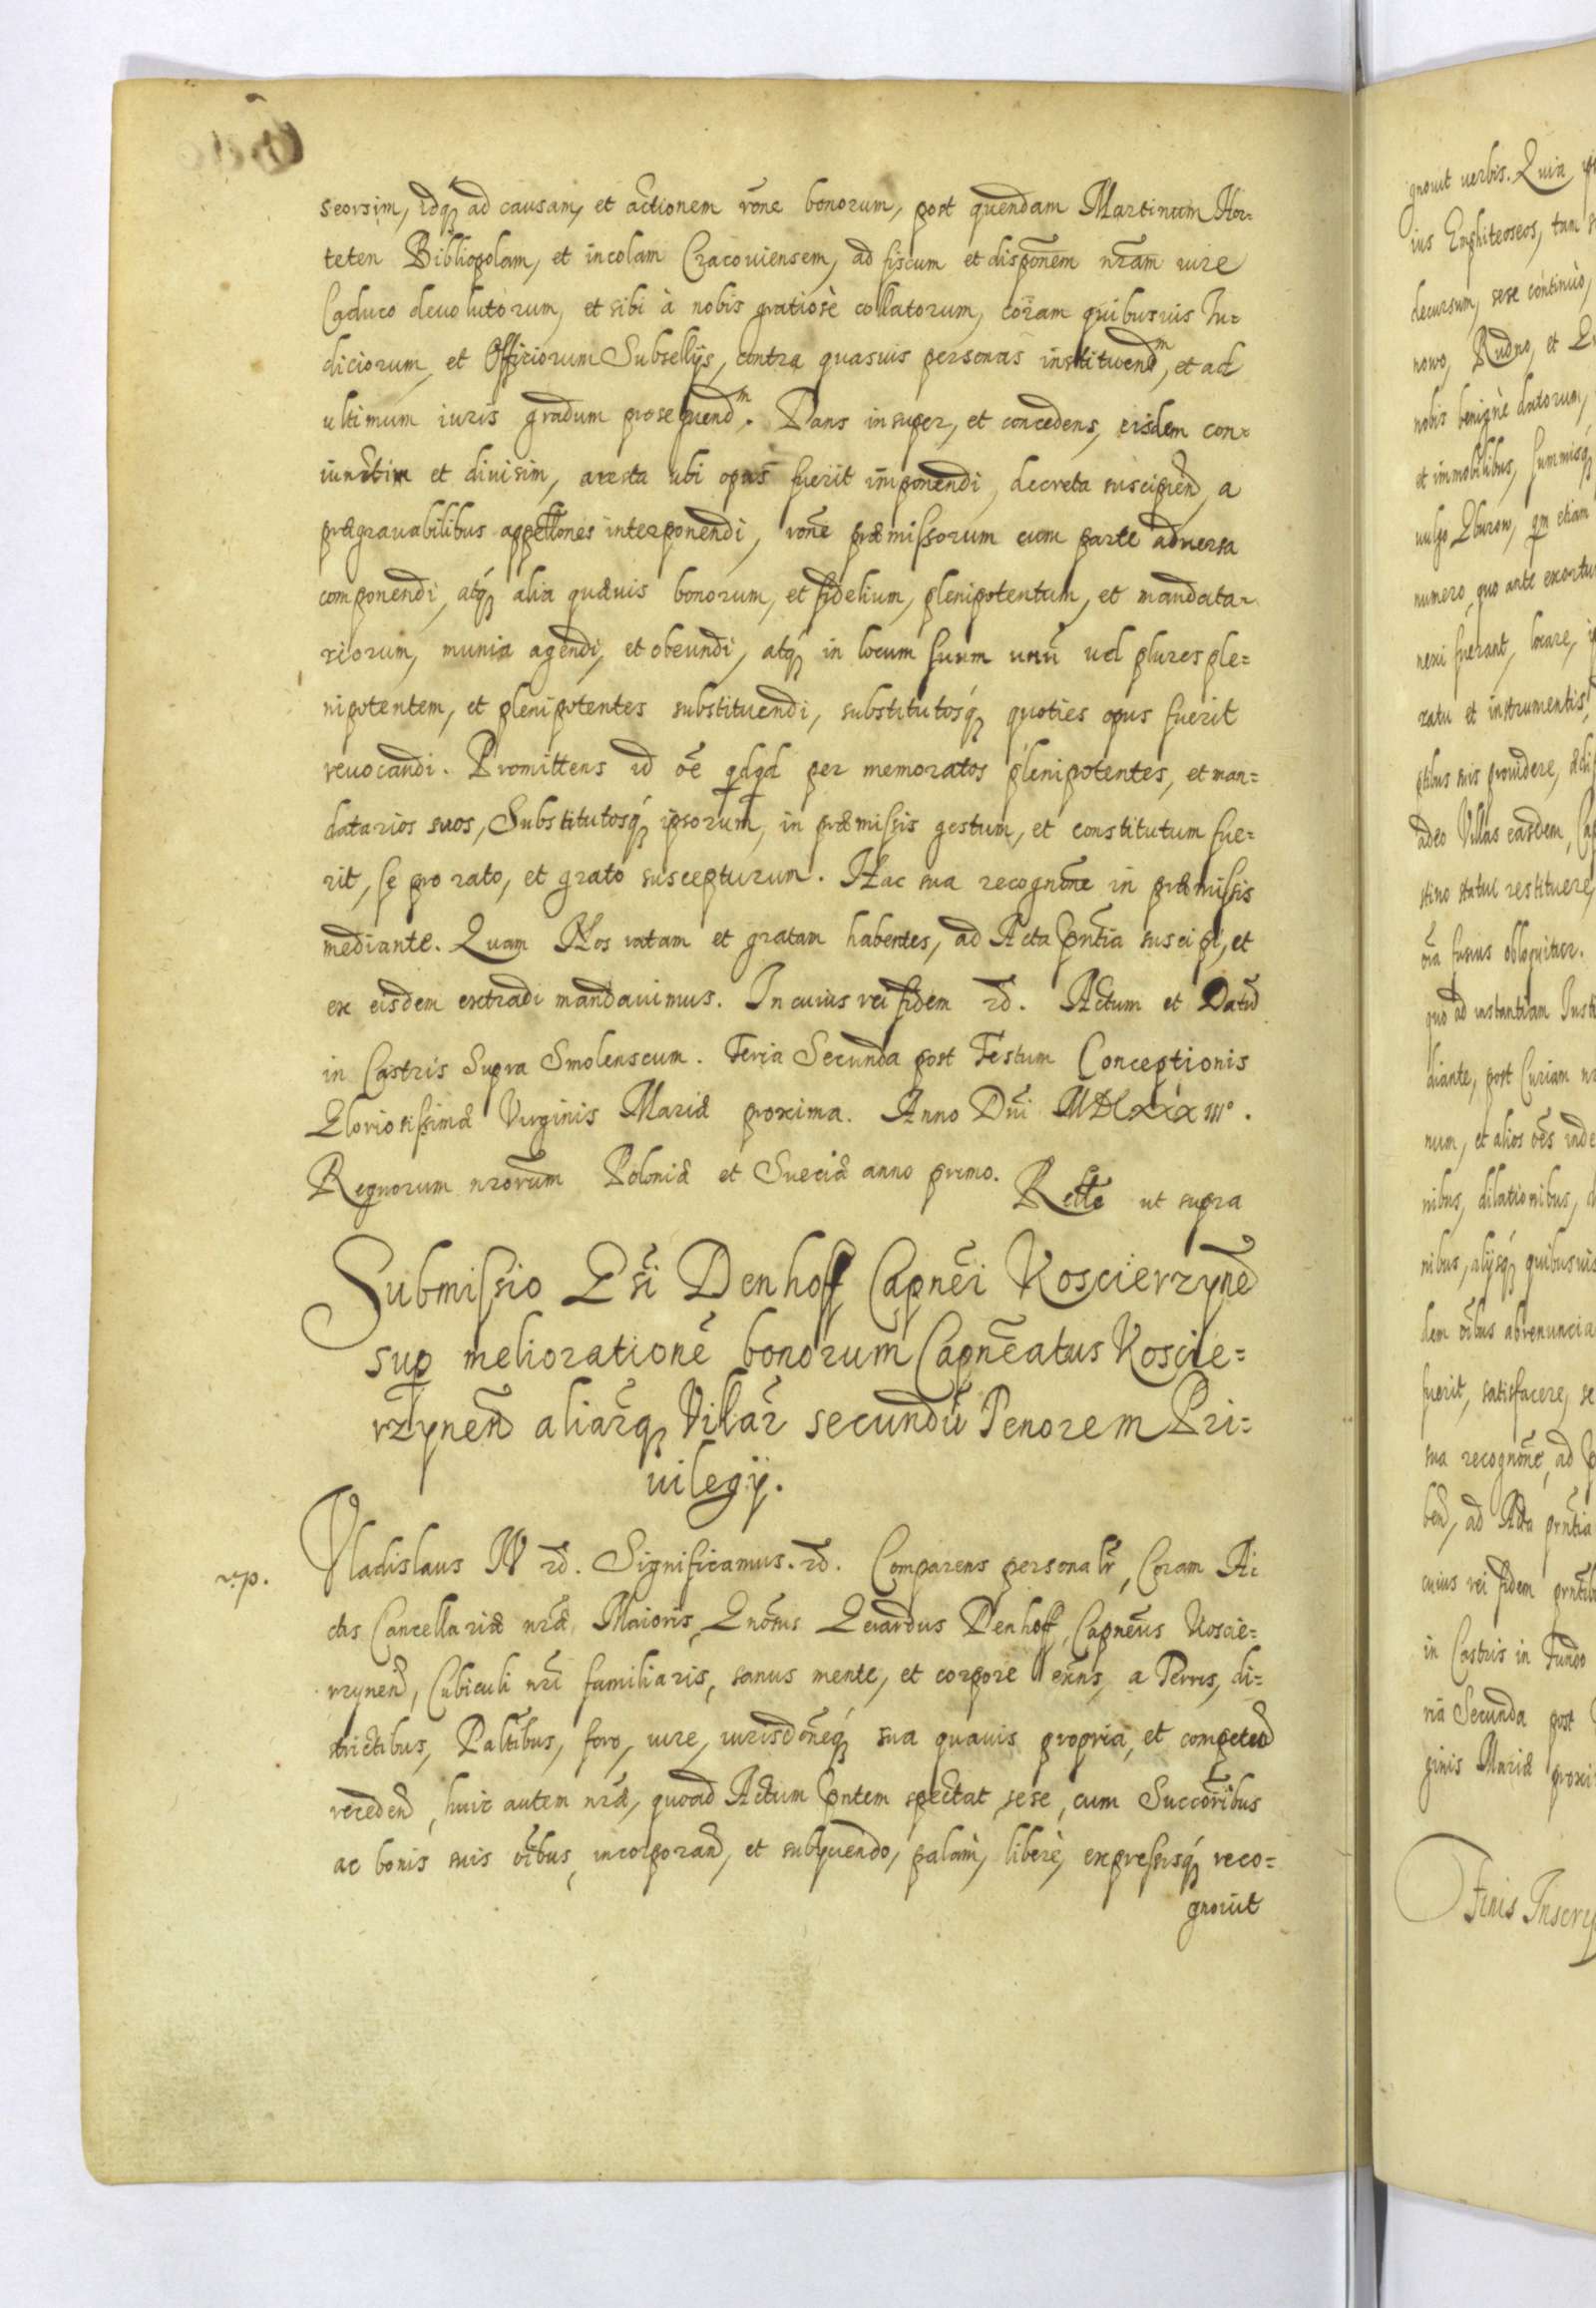 seorsim, idq₃ ad causam, et actionem rōne bonorum, post quendam Martinum Hor=
teten Bibliopolam, et incolam Cracouiensem, ad fiscum et dispōnem nr̄am iure
Caduco deuolutorum, et sibi à nobis gratiosè collatorum, coram quibusuis Iu=
diciorum, et Officiorum Subsellijs, contra quasuis personas instituendᵐ, et ad
ultimum iuris gradum prosequendᵐ. Dans insuper, et concedens, eisdem con=
iunctim et diuisim, aresta ubi opus fuerit imponendi, decreta suscipiend, a
prægrauabilibus appellōnes interponendi, rōne præmissorum cum parte aduersa
componendi, atq₃ alia quæuis bonorum, et fidelium, plenipotentum, et mandata=
riorum, munia agendi, et obeundi, atq₃ in locum suum unū uel plures ple=
nipotentem, et plenipotentes substituendi, substitutosq₃ quoties opus fuerit
reuocandi. Promittens id oē qdqd per memoratos plenipotentes, et man=
datarios suos, Substitutosq₃ ipsorum, in præmissis gestum, et constitutum fue=
rit, se pro rato, et grato suscepturum. Hac sua recognōne in præmissis
mediante. Quam Nos ratam et gratam habentes, ad Acta pn̄tia suscipi, et
ex eisdem extradi mandauimus. In cuius rei fidem ꝛc̄. Actum et Datū
in Castris Supra Smolenscum. Feria Secunda post Festum Conceptionis
Gloriosissimæ Virginis Mariæ proxima. Anno Dn̄i MDCXXXIIIº.
Regnorum nr̄orum Poloniæ et Sueciæ anno primo. Relto ut supra
Submissio Gsi Denhoff Capnēi Koscierzyneñ
sup melioratione bonorum Capnēatus Koscie=
rzyneñ aliarq₃ Villar secundū Tenorem Pri=
uilegij.
Vladislaus IV ꝛc̄. Significamus. ꝛc̄. Comparens personalr̄, Coram A=
ctis Cancellariæ nr̄æ Maioris, Gnōsus Gerardus Denhoff, Capnēus Koscie=
rzyneñ, Cubiculi nr̄i familiaris, sanus mente, et corpore ex̄ns, a Terris, di=
strictibus, Palt̄ibus, foro, iure, iurisdōneq₃ sua quauis propria, et competeñ
recedeñ, huic autem nr̄æ, quoad Actum pn̄tem spectat, sese, cum Succōribus
ac bonis suis oībus, incorporañ, et subijciendo, palàm, liberè, expressisq₃ reco=
gnouit
gnouit uerbis. Quia
ius Emphiteoseos, tam
decursum, sese continuò,
nowo, Rudno, et
nobis benignè datorum,
et immobilibus, summisq₃
uulgo
numero, quo ante exortu
nexi fuerant, locare,
ratu et instrumentis,
ptibus suis prouidere,
adeo Villas easdem,
stino statui restituere,
oīa fusius obloquitur.
quo ad instantiam Insti
diante, post Curiam
num, et alios oēs inde
nibus, dilationibus,
nibus, alijsq₃ quibusuis
dem oībus abrenuncia
fuerit, satisfacere, se
sua recognōne, ad
beñ, ad Acta prn̄tia
cuius rei fidem
in Castris in Fundo
ria Secunda post
ginis Mariæ proxi
Finis Inscrip